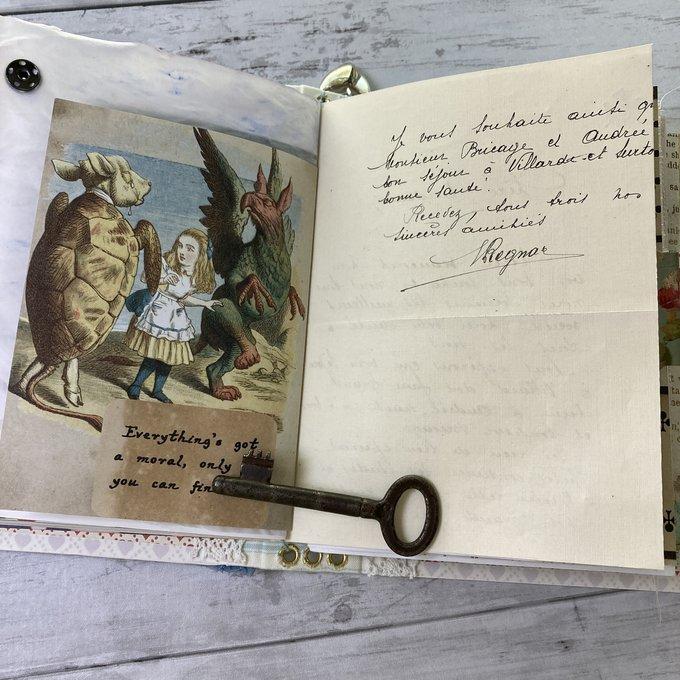 Everything's got
a moral, only
you can fin
vous souhaite ainsi
Monsieur Bricage et Andrée
bon séjour à Villard-et surto
bonne santé.
Recevez, tous trois nos
sincères amitiés
Regnar